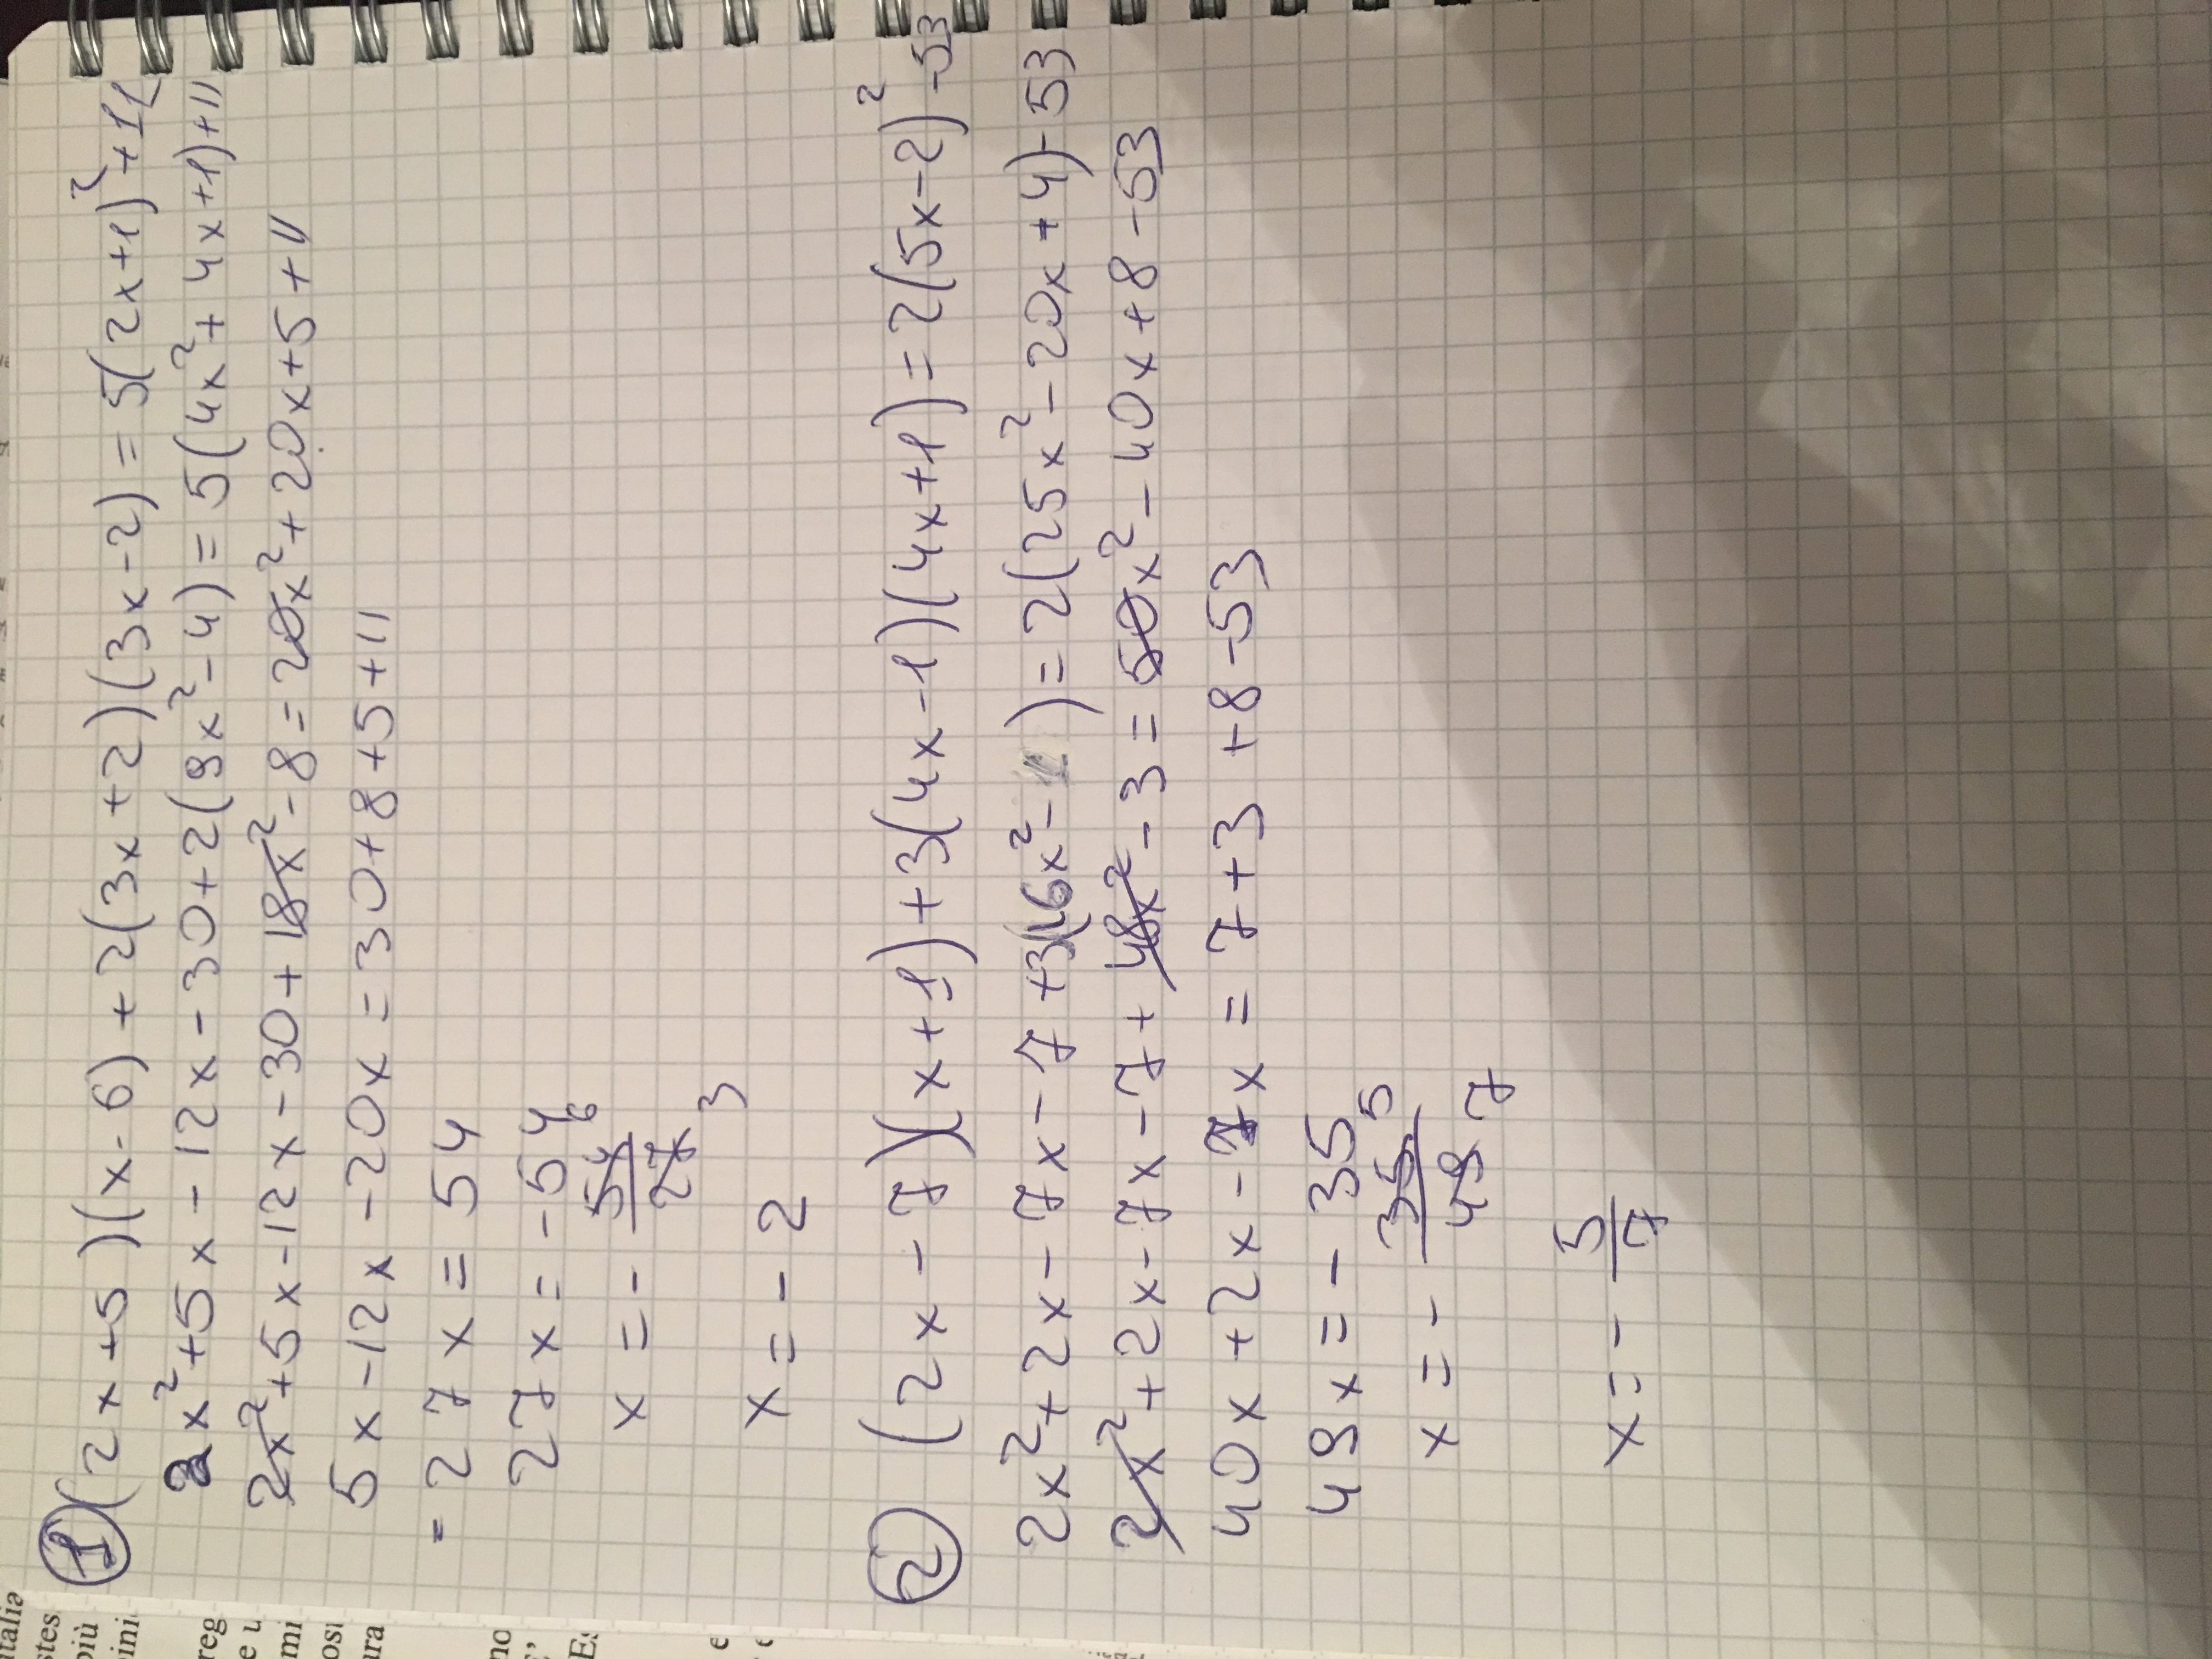 1) (2x+5)(x-6)+2(3x+2)(3x-2)=5(2x+1)²+11
2x²+5x-12x-30+2(9x²-4)=5(4x²+4x+1)+11
2x²+5x-12x-30+18x²-8=20x²+20x+5+11
5x-12x-20x=30+8+5+11
-27x=54
27x=-54
x=-54/27 6 3
x=-2
2) (2x-7)(x+1)+3(4x-1)(4x+1)=2(5x-2)²-53
2x²+2x-7x-7+3(16x²-1)=2(25x²-20x+4)-53
2x²+2x-7x-7+48x²-3=50x²-40x+8-53
40x+2x-7x=7+3+8-53
49x=-35
x=-35/49 5 7
x=-5/7
italia
stes
più
ini
reg
e u
mi
osi
ura
no
Es